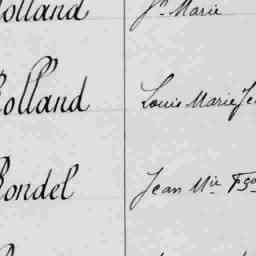 Rolland Jn Marie
Rolland Louis Marie Je
Rondel Jean Mie Fço